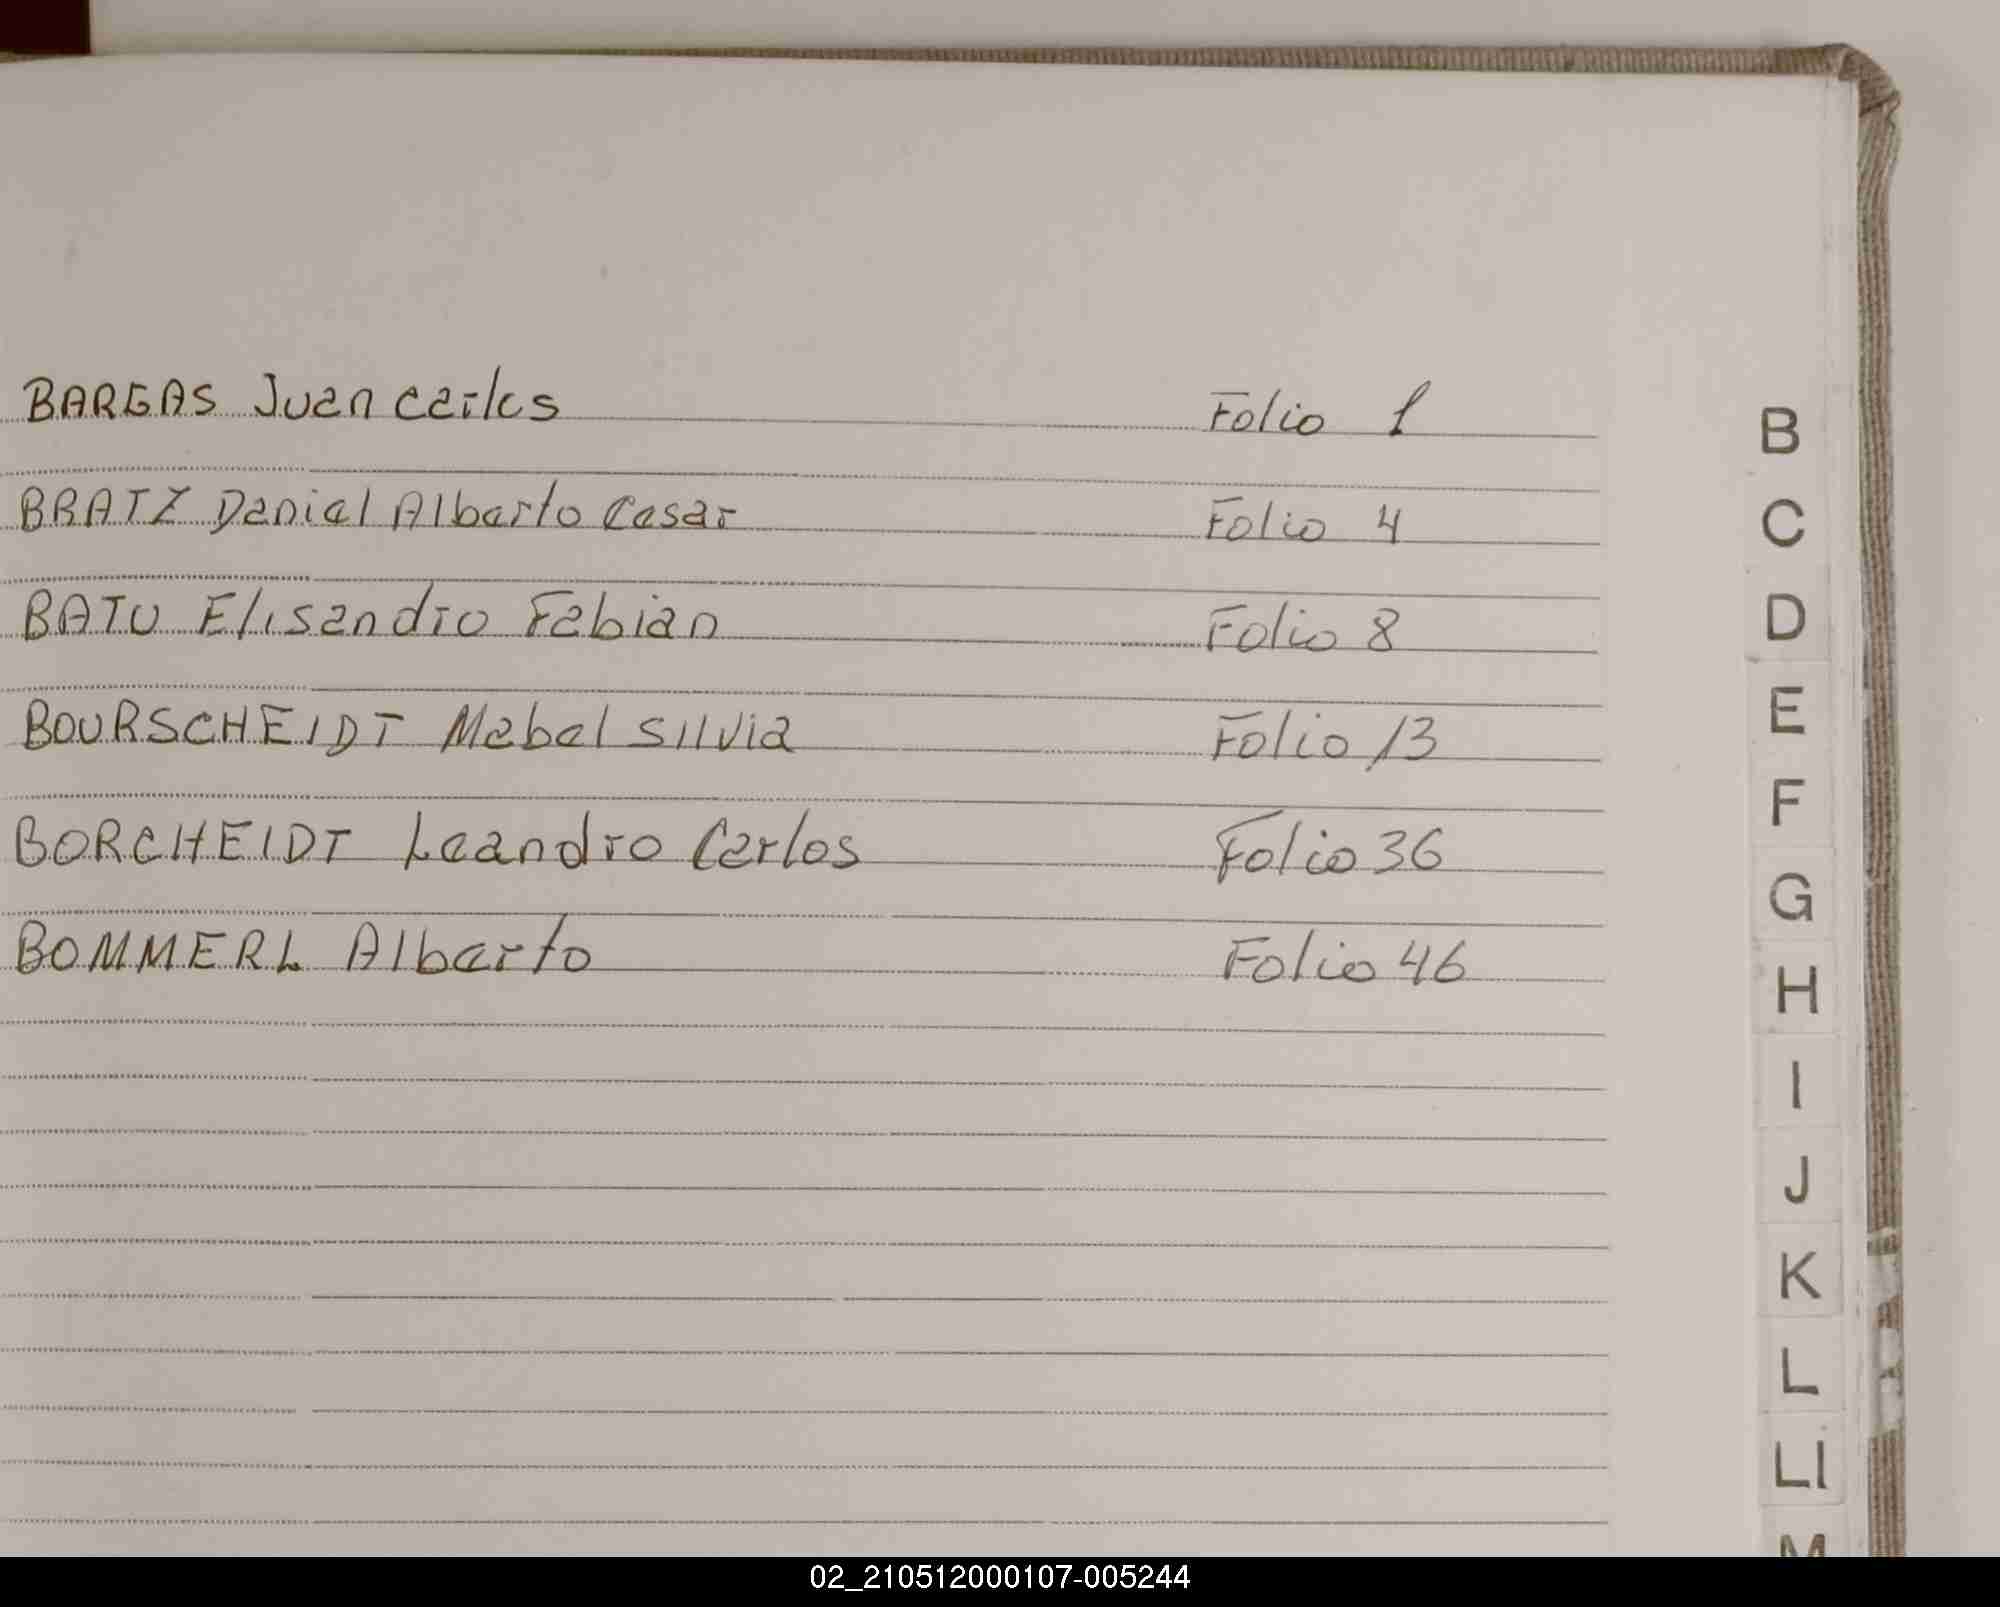 BARGAS Juan Carlos Folio 1
BRATZ Daniel Alberto Cesar Folio 4
BATU Elisandro Fabian Folio 8
BOURSCHEIDT Mabel Silvia Folio 13
BORCHEIDT Leandro Carlos Folio 36
BOMMERL Alberto Folio 46
B
C
D
E
F
G
H
I
J
K
L
Ll
M
02_210512000107-005244